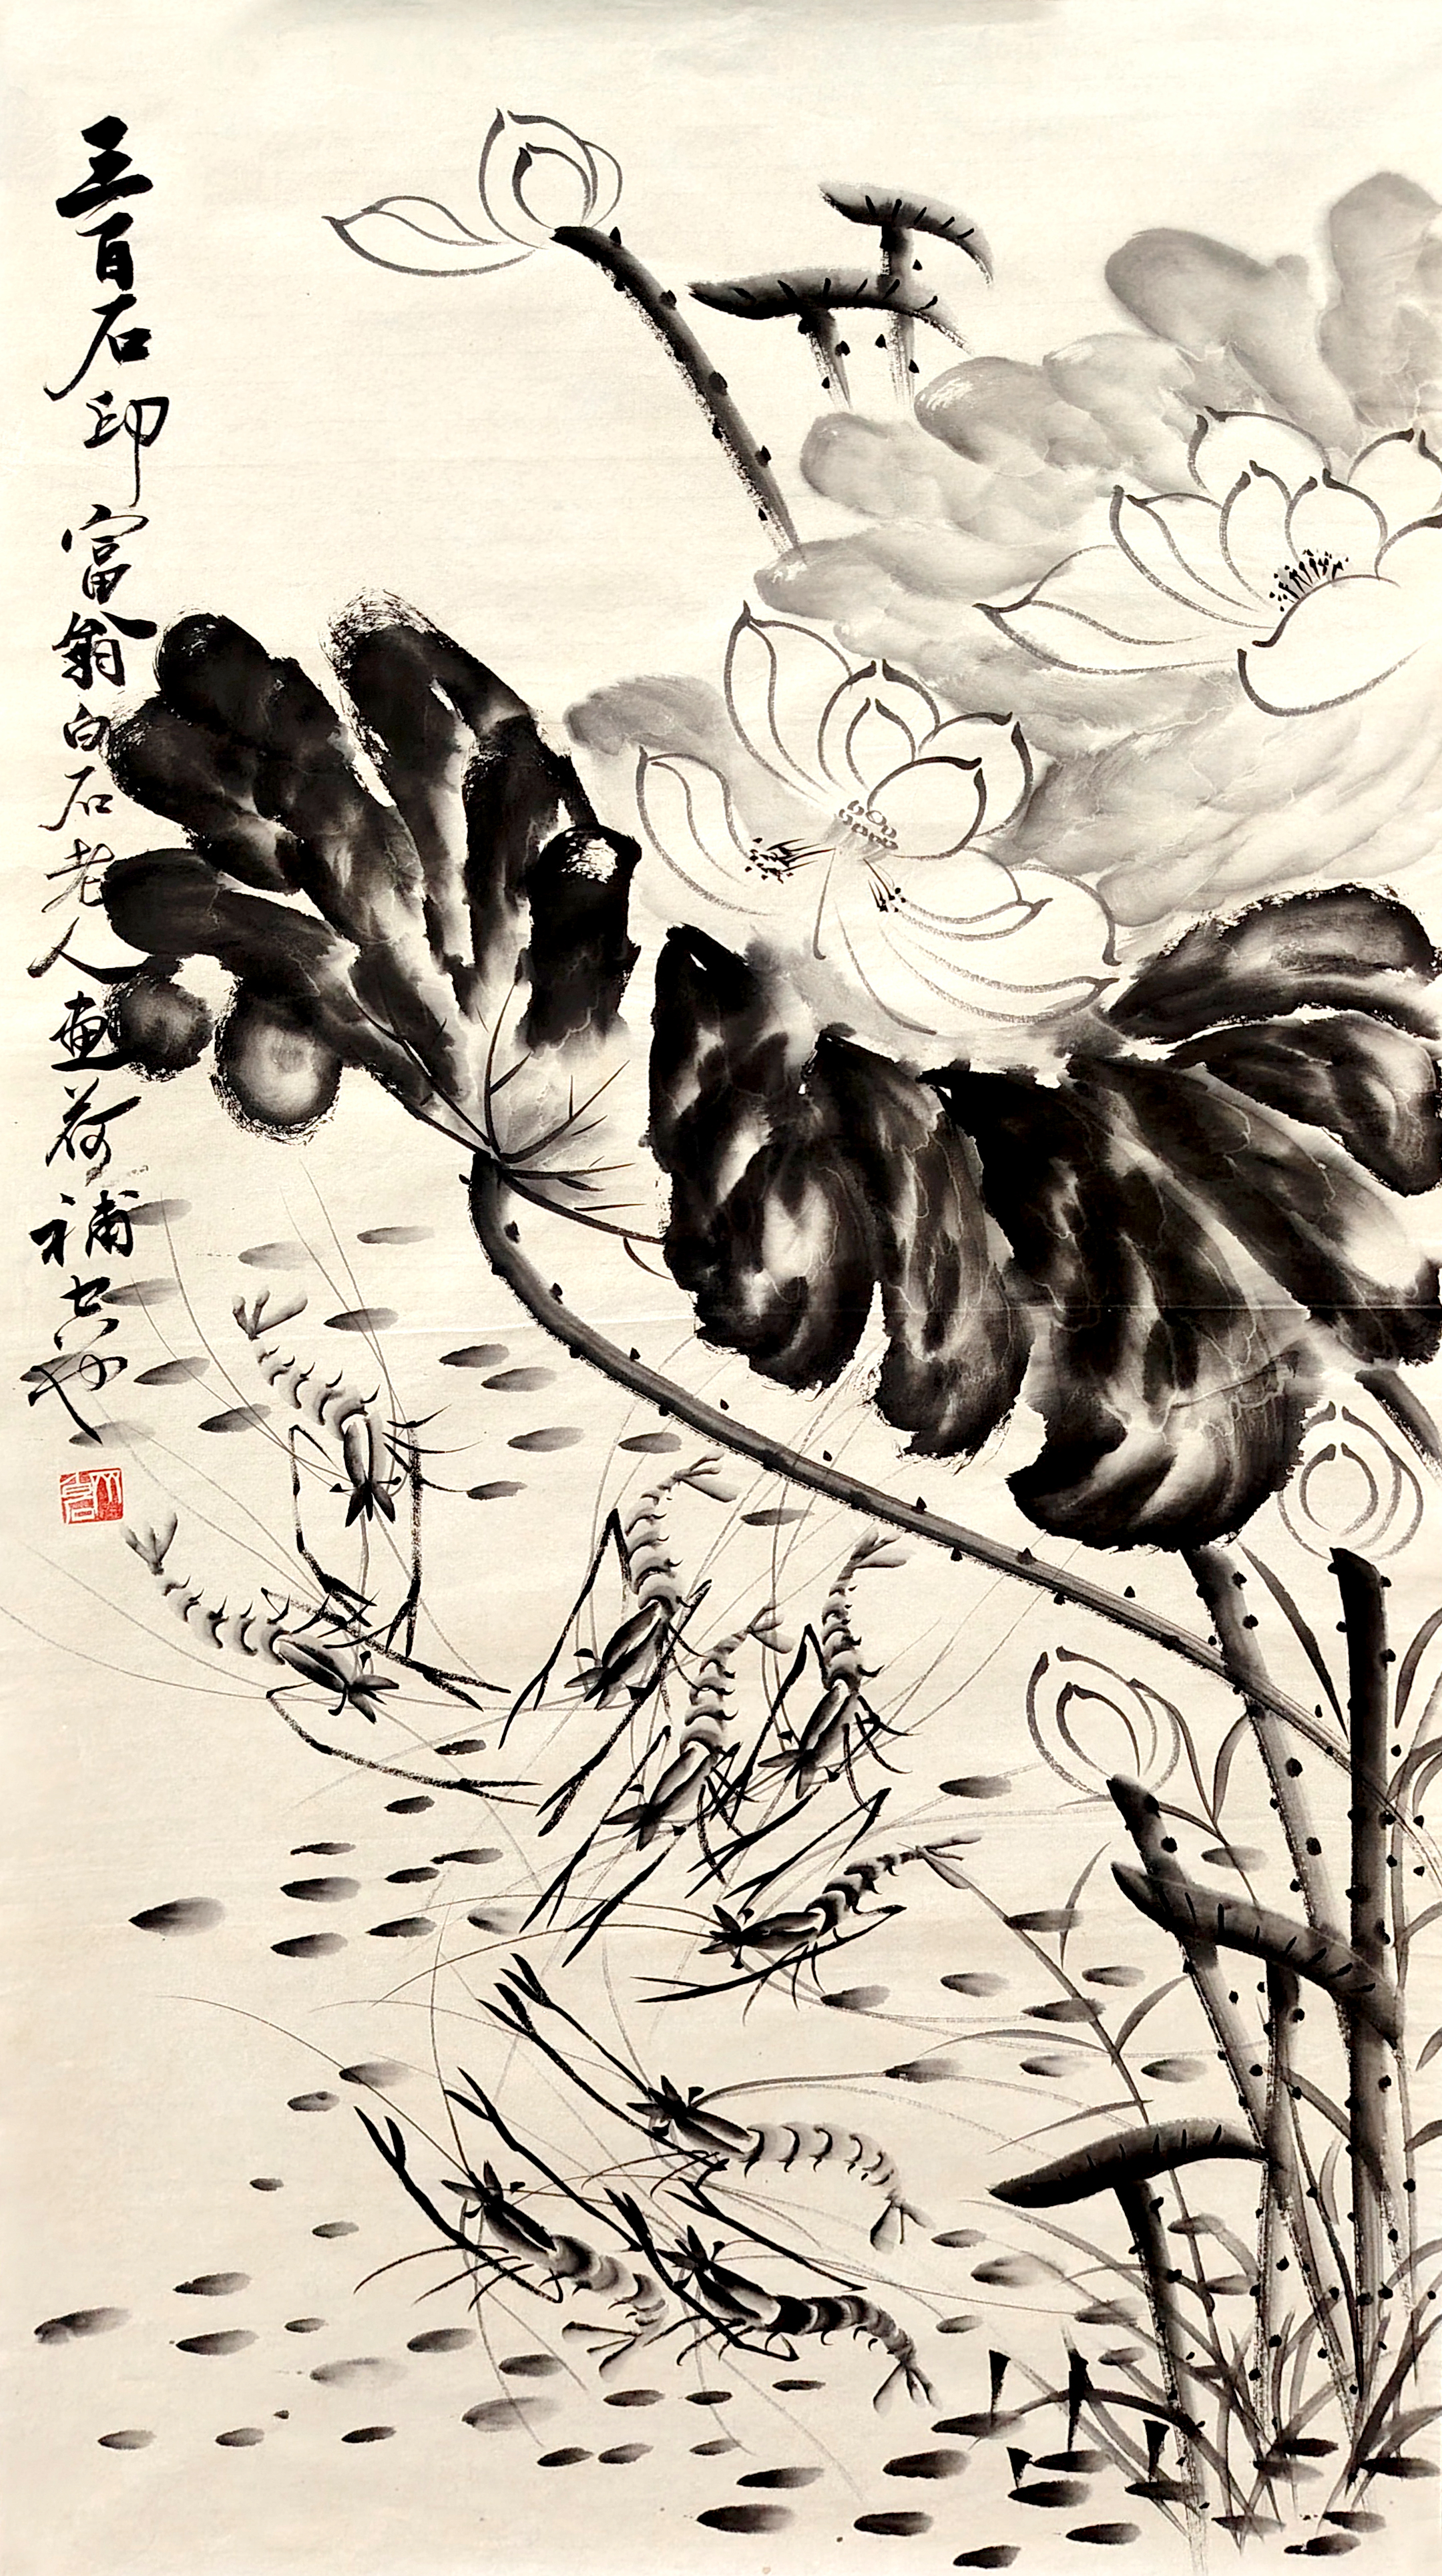 三百石印富翁白石老人畫荷補